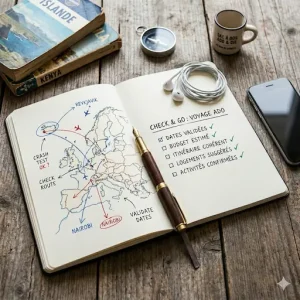 ISLANDE
KENYA
REYKJAVIK
CRASH
TEST
OK !
CHECK
ROUTE
NAIROBI
NAIROBI
VALIDATE
DATES
CHECK & GO : VOYAGE ADO
DATES VALIDÉES ✓
BUDGET ESTIMÉ ✓
ITINÉRAIRE COHÉRENT ✓
LOGEMENTS SUGGÉRÉS ✓
ACTIVITÉS CONFIRMÉES ✓